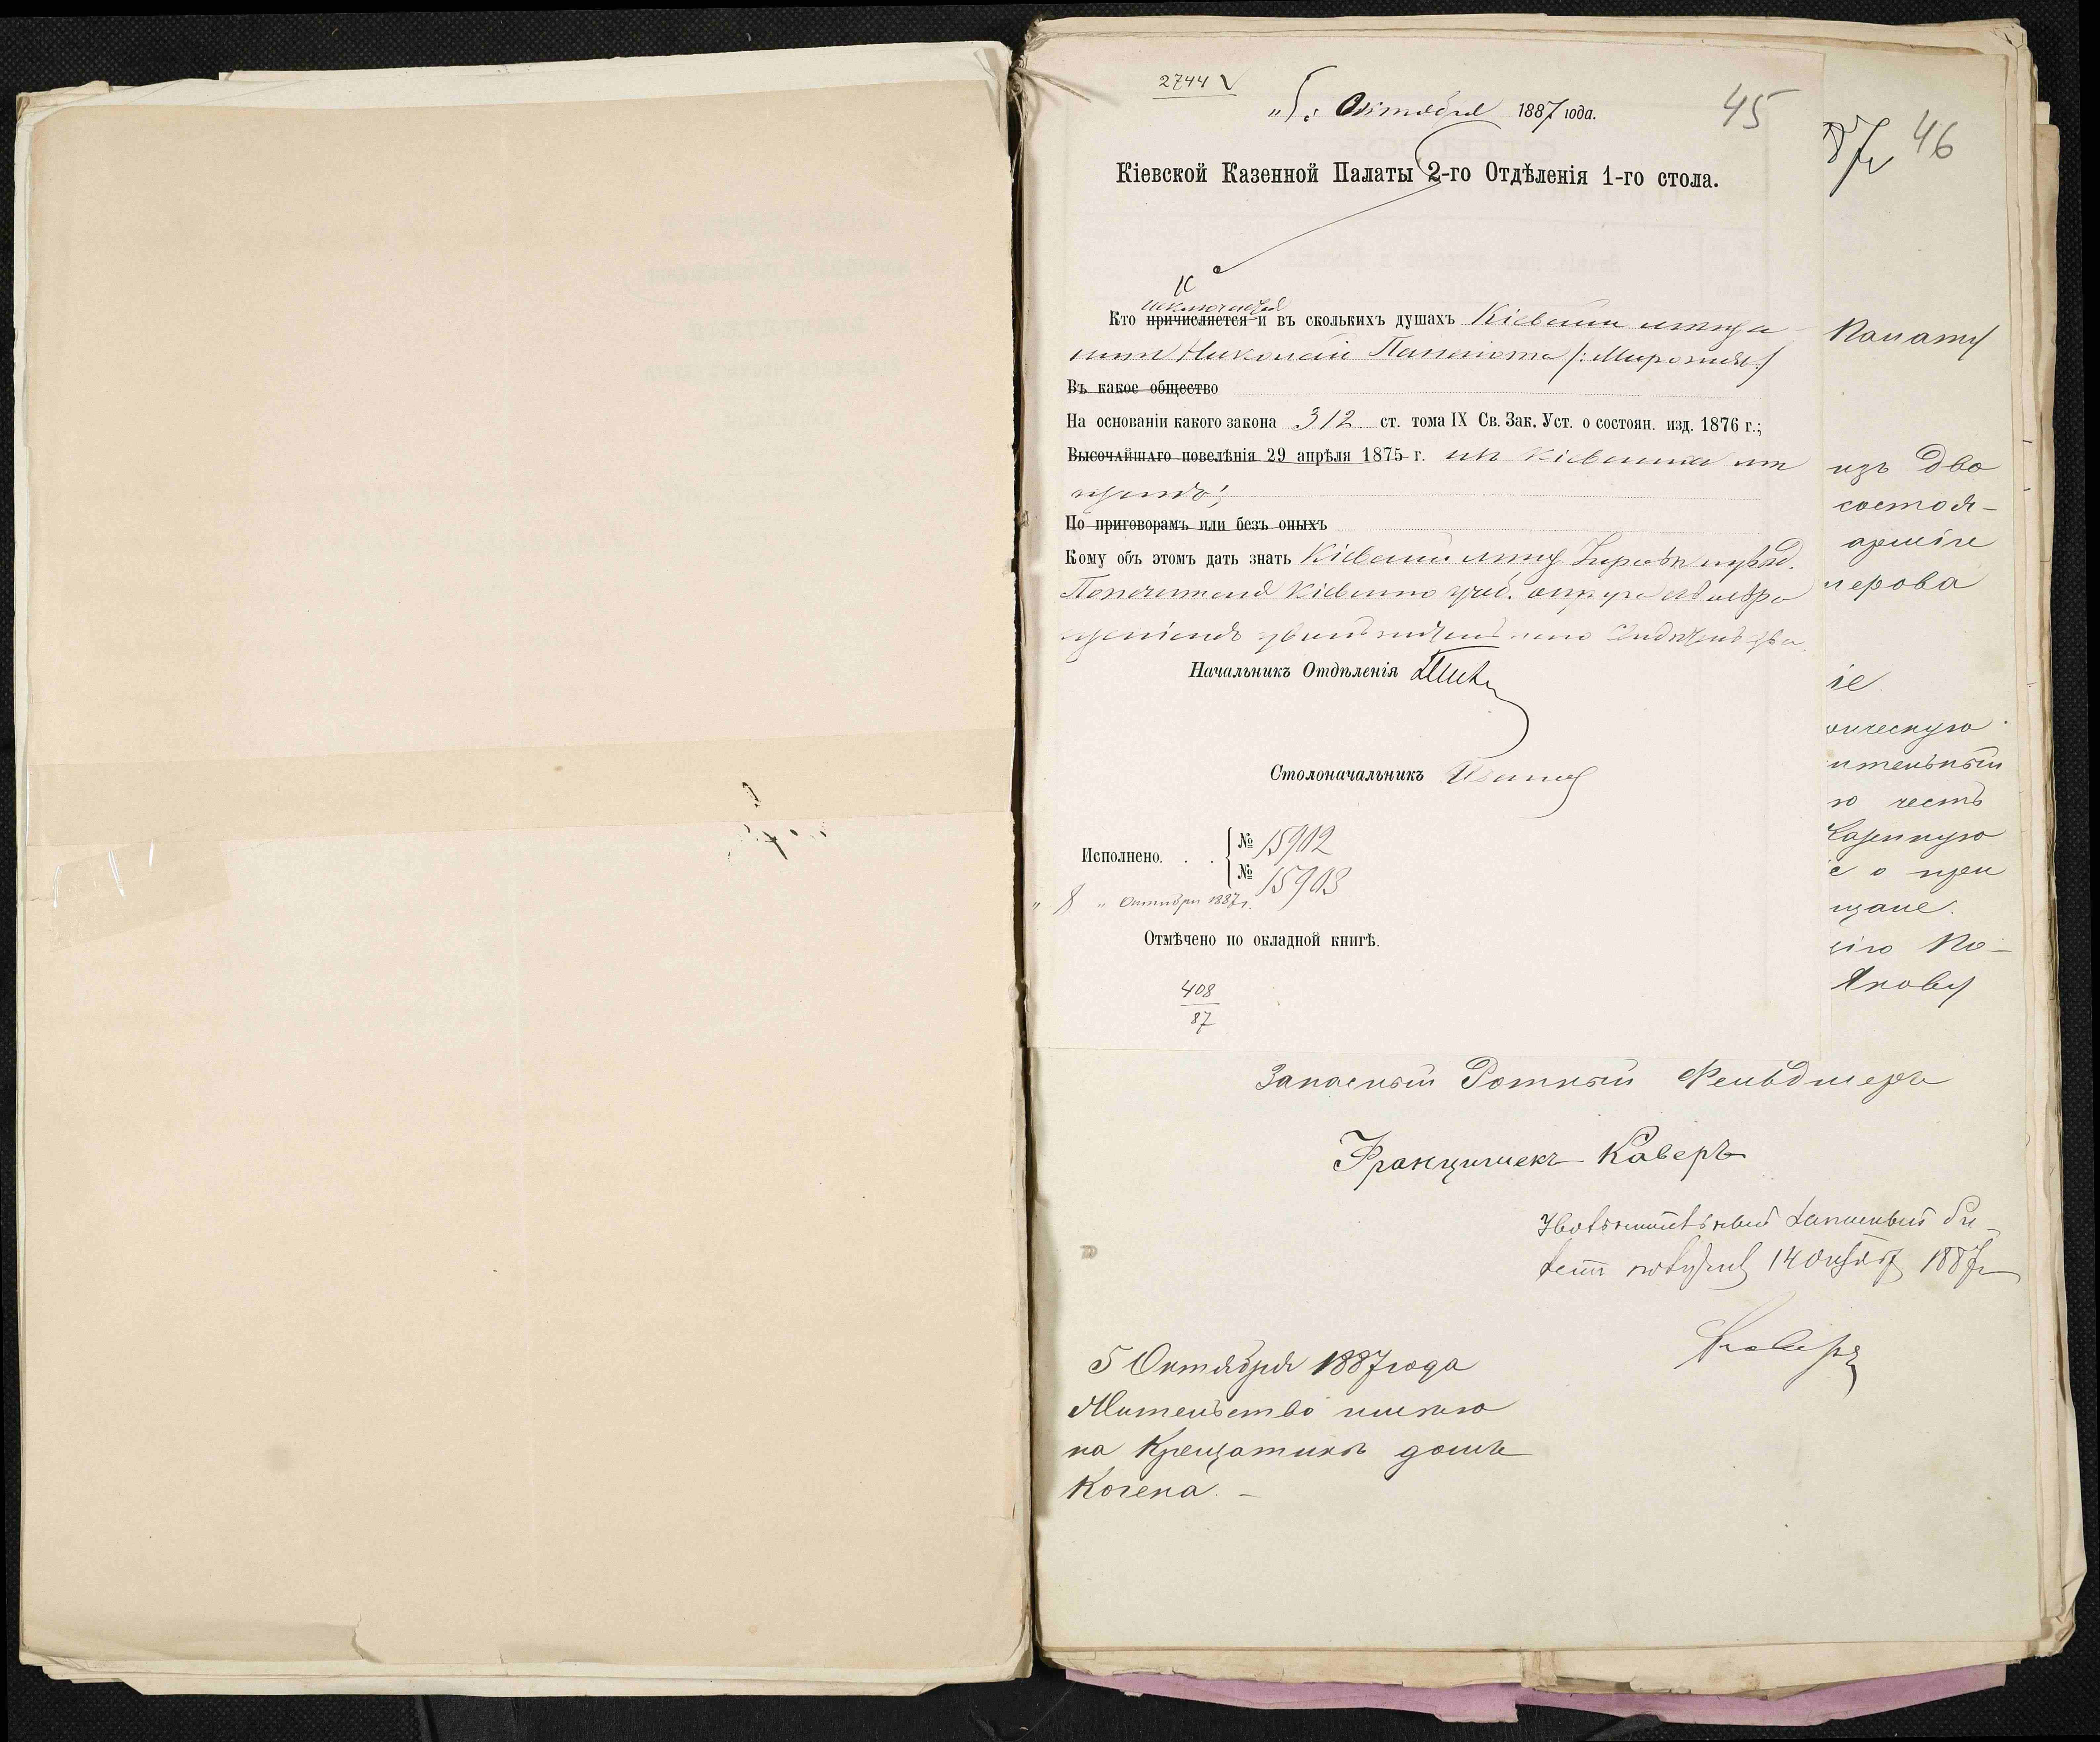 2744 V
"5" Октября 1887 года.
45
Кіевской Казенной Палаты 2-го Отдѣленія 1-го стола.
исключается
Кто причисляется и въ сколькихъ душахъ Кіевскій мѣща
нинъ Николай
Въ какое общество
На основаніи какого закона 312 ст. тома IX Св. Зак. Уст. о состоян. изд. 1876 г.;
Высочайшаго повелѣнія 29 апрѣля 1875 г. изъ Кіевскихъ мѣ
щанъ;
По приговорамъ или безъ оныхъ
Кому объ этомъ дать знать Кіевской мѣщ. Управѣ и увѣд.
Попечителя Кіевскаго учеб. округа
Начальникъ Отдѣленія
Столоначальникъ
Исполнено. . . № 15902
№ 15903
" 8 " Октября 1887 г.
Отмѣчено по окладной книгѣ.
408
87
87 г 46
Палату
изъ Дво
состоя-
арміи
мерова
іе
ическую
ительный
ю честь
Казенную
е о при
щане.
ію По-
Якову
Запасный Ротный Фельдшеръ
Францишекъ Каверъ
Увольнительный запасный би-
летъ получилъ 14 октября 1887 г
Каверъ
5 Октября 1887 года
Жительство имѣю
на Крещатикѣ домъ
Когена. –